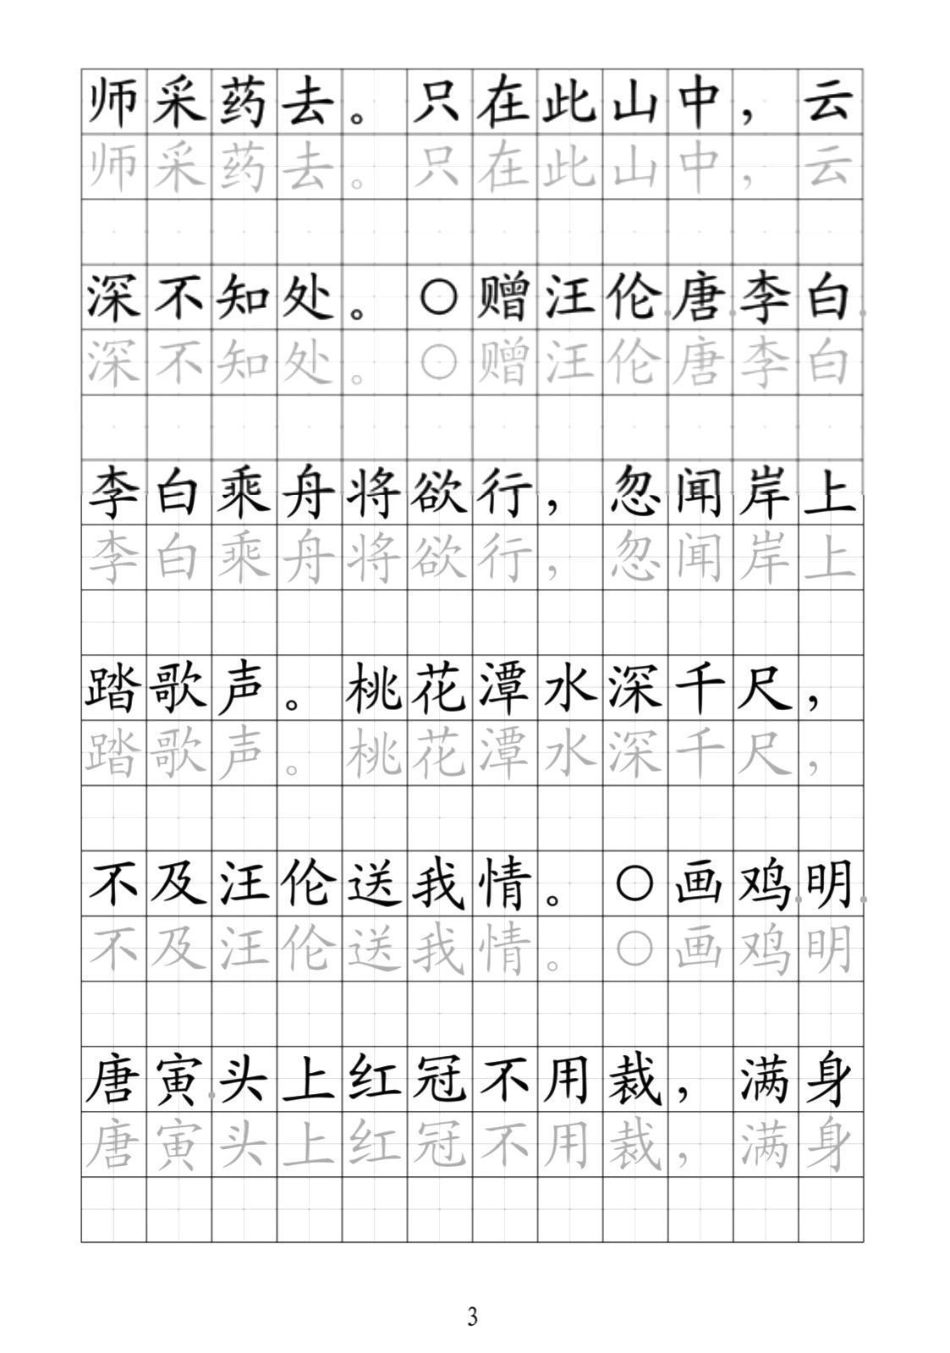 师采药去。只在此山中，云
师采药去。只在此山中，云
深不知处。○赠汪伦唐李白
深不知处。○赠汪伦唐李白
李白乘舟将欲行，忽闻岸上
李白乘舟将欲行，忽闻岸上
踏歌声。桃花潭水深千尺，
踏歌声。桃花潭水深千尺，
不及汪伦送我情。○画鸡明
不及汪伦送我情。○画鸡明
唐寅头上红冠不用裁，满身
唐寅头上红冠不用裁，满身
3